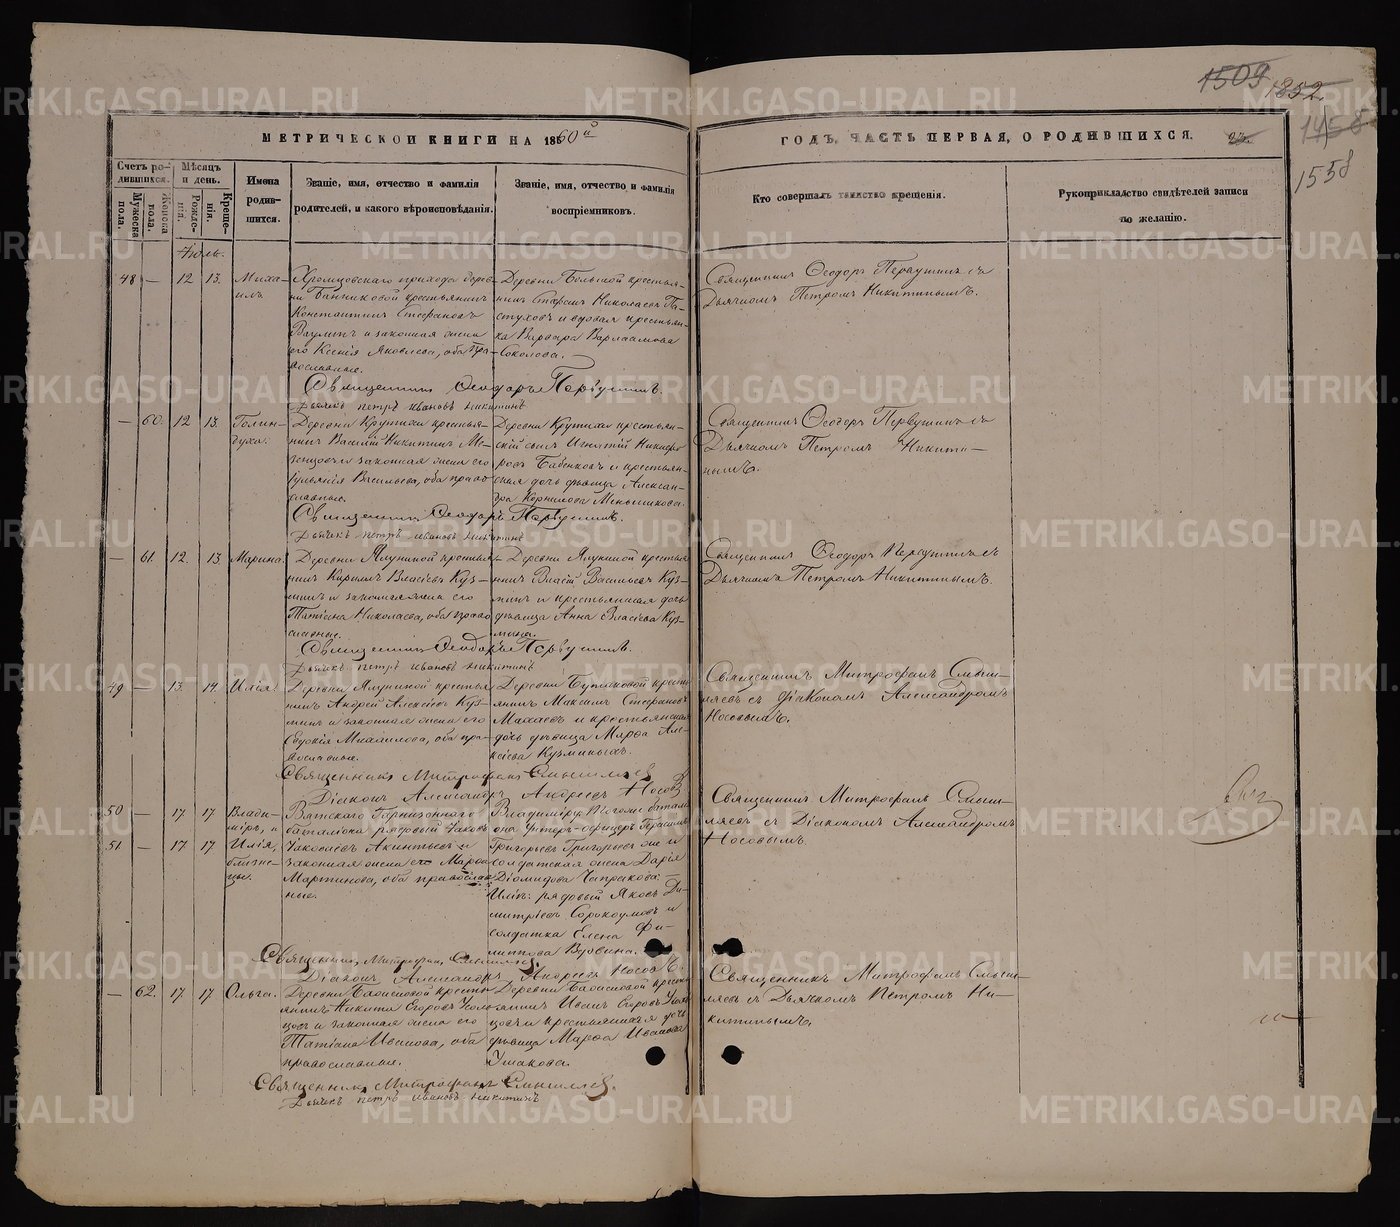 1509 1852.
1458
1558
МЕТРИЧЕСКОЙ КНИГИ НА 1860й
ГОДЪ, ЧАСТЬ ПЕРВАЯ, О РОДИВШИХСЯ.
Счетъ родившихся.
Мужеска пола.
Женска пола.
Мѣсяцъ и день.
Рожденія.
Крещенія.
Имена родившихся.
Званіе, имя, отчество и фамилія родителей, и какого вѣроисповѣданія.
Званіе, имя, отчество и фамилія воспріемниковъ.
Кто совершалъ таинство крещенія.
Рукоприкладство свидѣтелей записи по желанію.
Іюль.
48 — 12 13. Михаилъ
Хромцовскаго прихода деревни Банниковой крестьянинъ
Константинъ Стефановъ
и законная жена
его Ксенія Яковлева, оба православные.
Деревни Большой крестьянинъ Стефанъ Николаевъ Пастуховъ и вдовая крестьянка Варвара Варлаамова
Соколова.
Священникъ Ѳеодоръ Первушинъ съ
Дьячкомъ Петромъ Никитинымъ.
Священникъ Ѳеодоръ Первушинъ.
Дьячекъ петръ ивановъ никитинъ
— 60. 12 13. Голиндуха.
Деревни Крутихи крестьянинъ Василій Никитинъ
и законная жена его
Іульянія Васильева, оба православные.
Деревни Крутихи крестьянскій сынъ Игнатій Никифоровъ Бабенковъ и крестьянская дочь дѣвица Александра Корнилова Меньшикова.
Священникъ Ѳеодоръ Первушинъ съ
Дьячкомъ Петромъ Никитинымъ.
Священникъ Ѳеодоръ Первушинъ.
Дьячекъ петръ ивановъ никитинъ
— 61. 12. 13 Марина.
Деревни Ялуниной крестьянинъ Кирилъ Власіевъ Кузминъ и законная жена его
Татіана Николаева, оба православные.
Деревни Ялуниной крестьянинъ Власій Васильевъ Кузминъ и крестьянская дочь
дѣвица Анна Власіева Кузмина.
Священникъ Ѳеодоръ Первушинъ съ
Дьячкомъ Петромъ Никитинымъ.
Священникъ Ѳеодоръ Первушинъ.
Дьячекъ петръ ивановъ никитинъ
49 — 13. 14. Илія.
Деревни Ялуниной крестьянинъ Андрей Алексѣевъ Кузминъ и законная жена его
Евдокія Михаилова, оба православные.
Деревни Бутаковой крестьянинъ Максимъ Стефановъ
Махаевъ и крестьянская
дочь дѣвица Марѳа Алексіева Кузминыхъ.
Священникъ Митрофанъ Смышляевъ съ діакономъ Александромъ
Носовымъ.
Священникъ Митрофанъ Смышляевъ
Діаконъ Александръ Андреевъ Носовъ
50 — 17 17 Владиміръ, и
51 — 17. 17 Илія, близнецы.
Вятскаго Гарнизоннаго
баталіона рядовый Іаковъ
Іаковлевъ Акинтьевъ и
законная жена его Марѳа
Мартинова, оба православные.
Владиміру: Того же баталіона Унтеръ-офицеръ Герасимъ
Григорьевъ Григорьевъ же и
солдатская жена Дарія
Діомидова
Иліи: рядовый Яковъ Димитріевъ Сорокоумовъ и
солдатка Елена Филиппова Вдовина.
Священникъ Митрофанъ Смышляевъ съ Діакономъ Александромъ
Носовымъ.
Священникъ Митрофанъ Смышляевъ
Діаконъ Александръ Андреевъ Носовъ.
— 62. 17. 17 Ольга.
Деревни крестьянинъ Никита Егоровъ
и законная жена его
Татіана Иванова, оба
православные.
Деревни крестьянинъ Иванъ Егоровъ
и крестьянская дочь
дѣвица Марѳа Иванова
Ушакова.
Священникъ Митрофанъ Смышляевъ съ Дьячкомъ Петромъ Никитинымъ.
Священникъ Митрофанъ Смышляевъ.
Дьячекъ петръ ивановъ никитинъ
METRIKI.GASO-URAL.RU